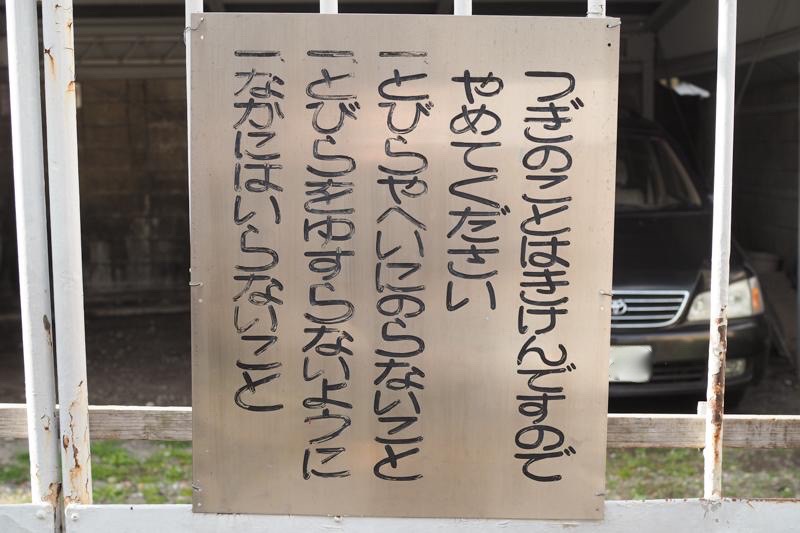 つぎのことはきけんですので
やめてください
一、とびらやへいにのらないこと
一、とびらをゆすらないように
一、なかにはいらないこと